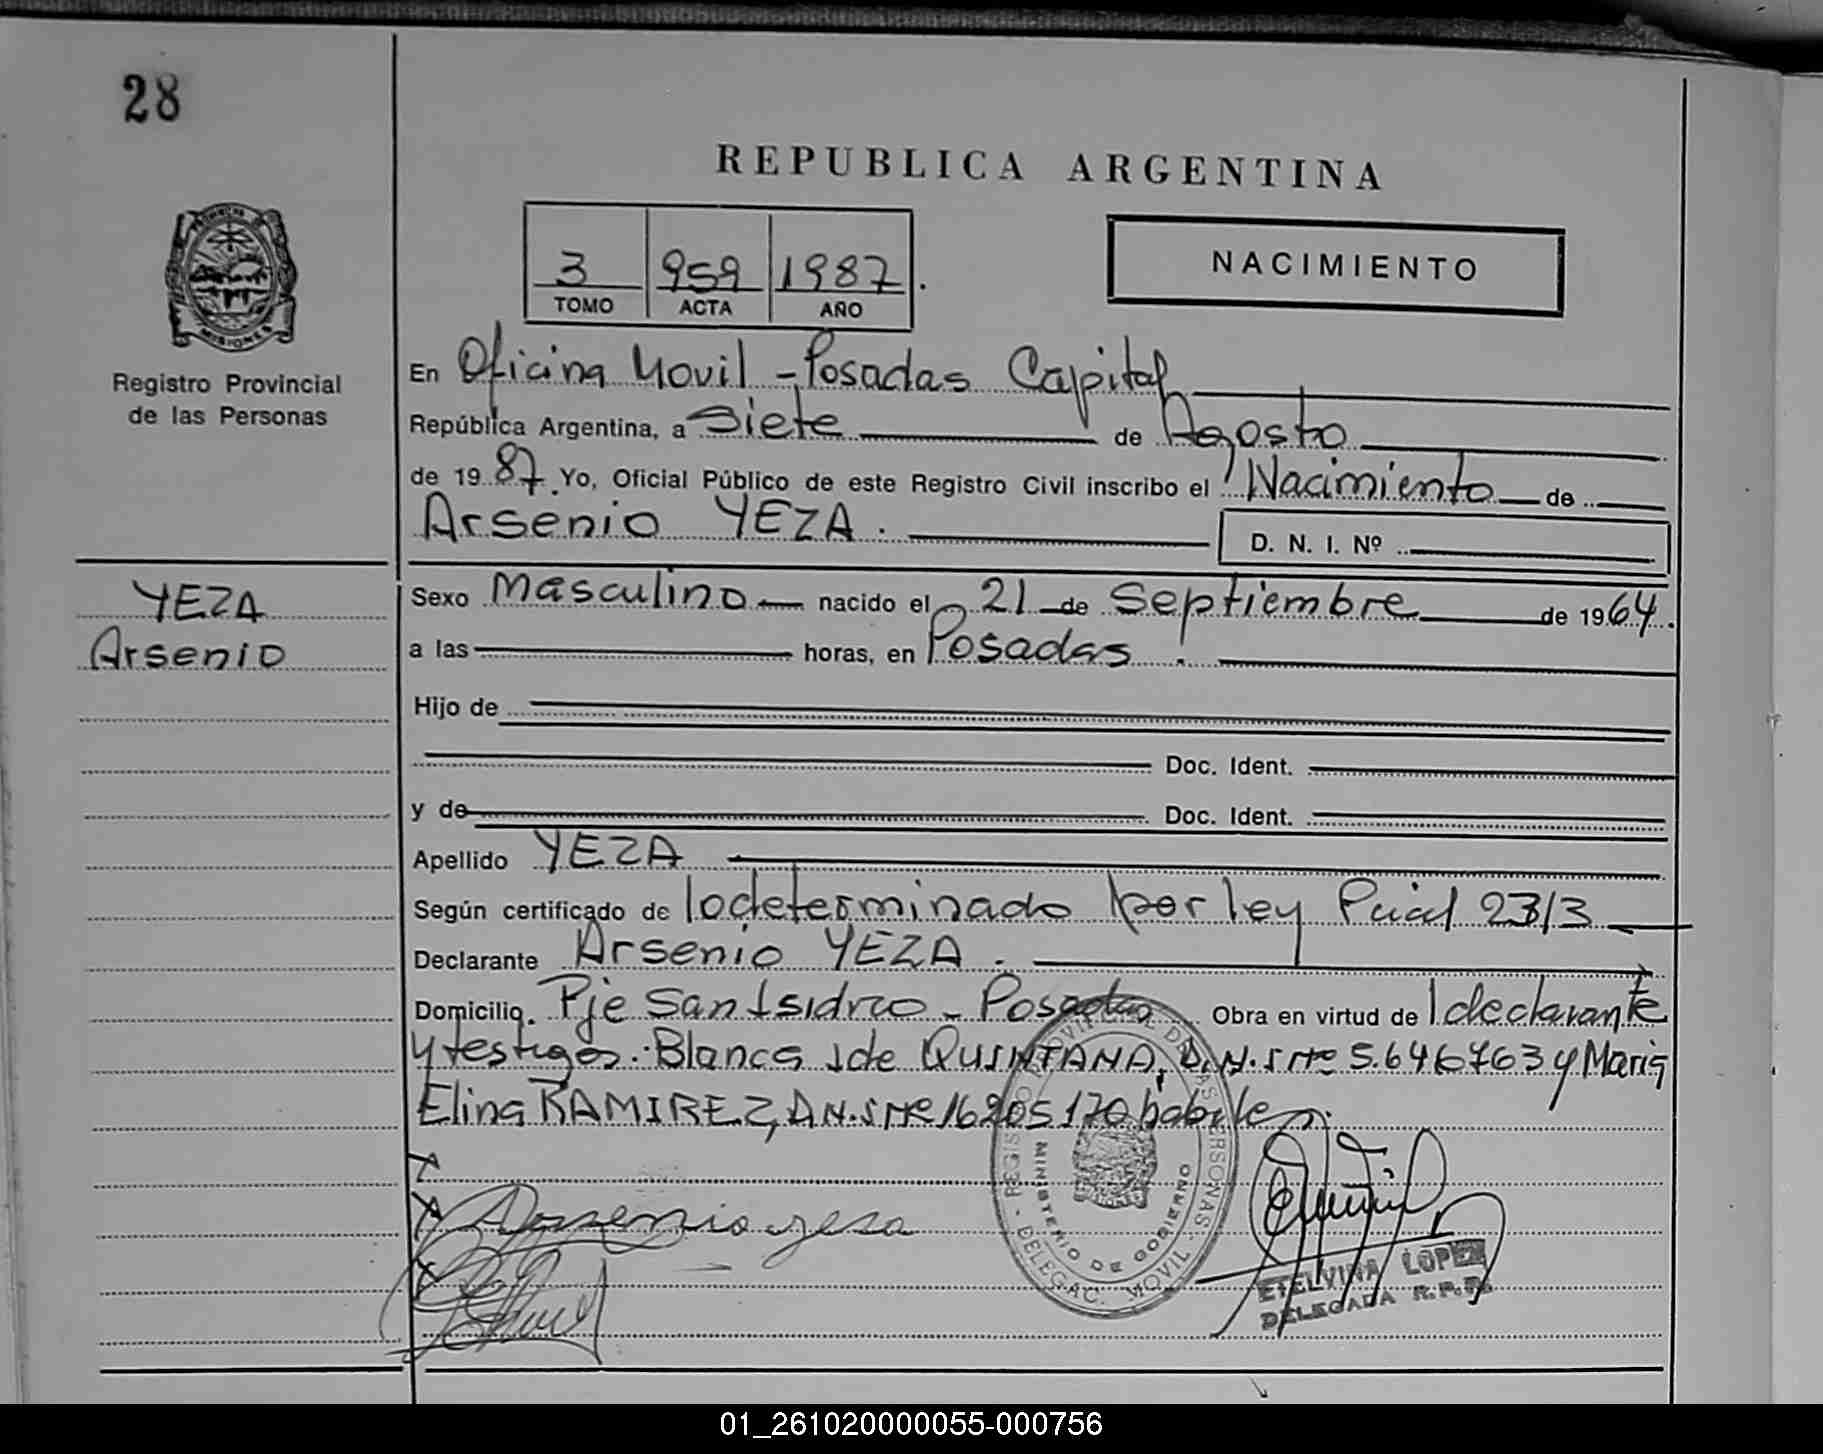 28
REPUBLICA ARGENTINA
3 959 1987
TOMO ACTA AÑO
NACIMIENTO
Registro Provincial
de las Personas
En Oficina Movil - Posadas Capital
República Argentina, a Siete de Agosto
de 1987. Yo, Oficial Público de este Registro Civil inscribo el Nacimiento de
Arsenio YEZA.
D. N. I. Nº
YEZA
Arsenio
Sexo Masculino nacido el 21 de Septiembre de 1964.
a las horas, en Posadas.
Hijo de
Doc. Ident.
y de Doc. Ident.
Apellido YEZA
Según certificado de lo determinado por ley Pcial 2313
Declarante Arsenio YEZA.
Domicilio. Pje San Isidro - Posadas Obra en virtud de l declarante
y testigos: Blanca Ide QUINTANA, D.N.I Nº 5.646763 y Maria
Elina RAMIREZ, D.N.I Nº 16205170
Arsenio yesa
REGISTRO PROVINCIAL DE LAS PERSONAS - DELEGAC. MOVIL -
MINISTERIO DE GOBIERNO
ETELVINA LOPEZ
DELEGADA R.P.P.
01_261020000055-000756